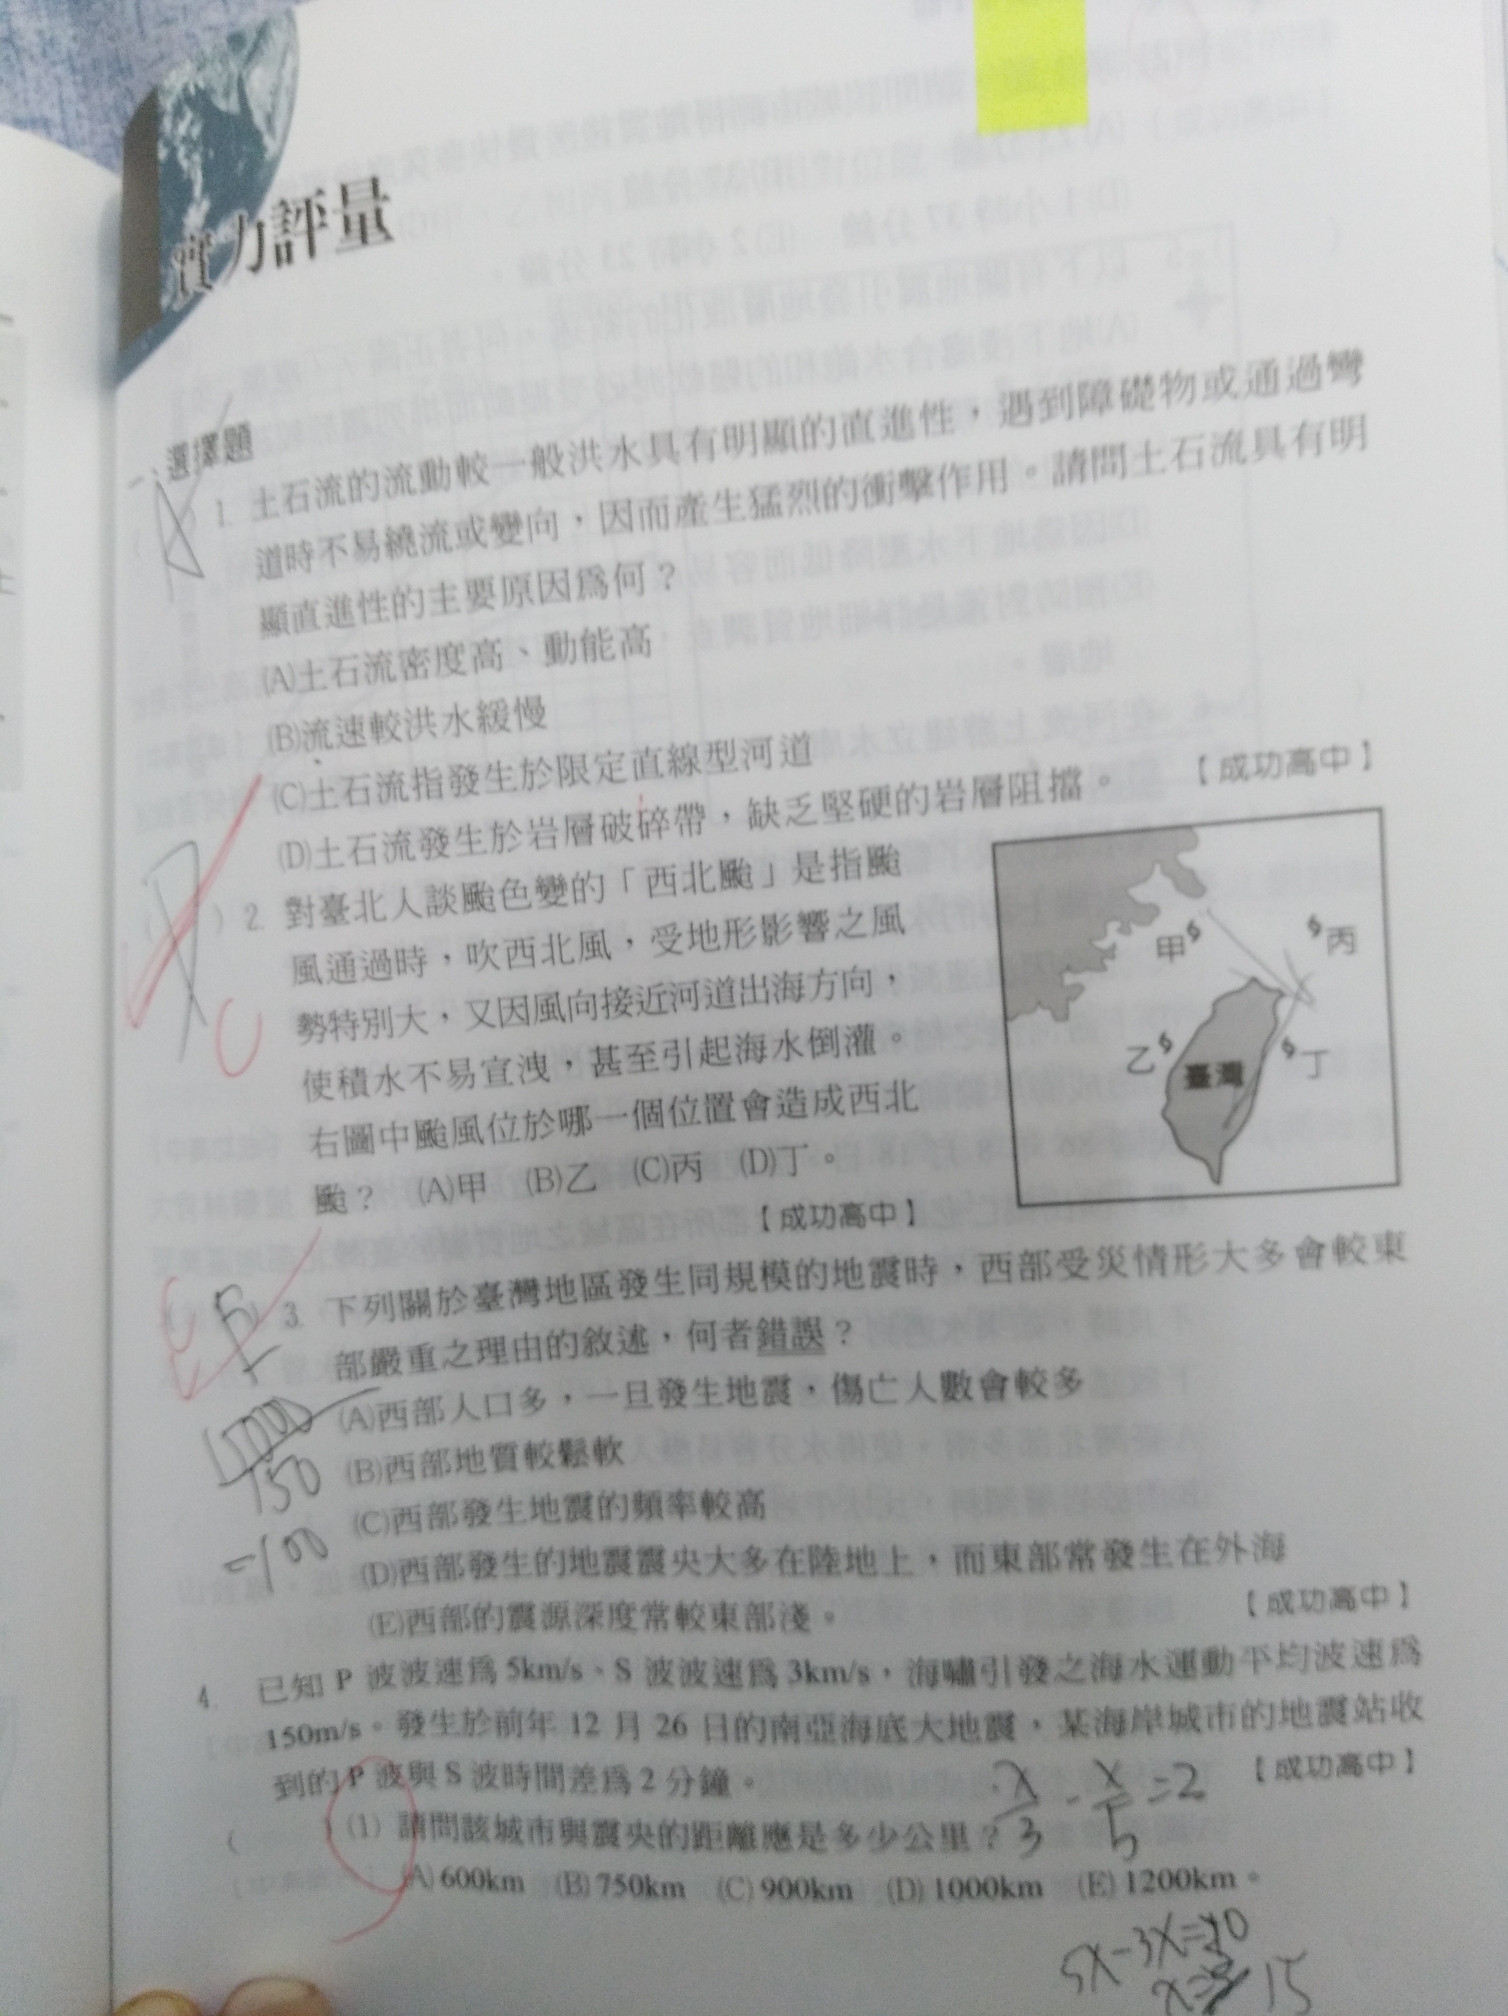 實力評量
一、選擇題
A
1. 土石流的流動較一般洪水具有明顯的直進性，遇到障礙物或通過彎
道時不易繞流或變向，因而產生猛烈的衝擊作用。請問土石流具有明
顯直進性的主要原因為何？
(A)土石流密度高、動能高
(B)流速較洪水緩慢
(C)土石流指發生於限定直線型河道
(D)土石流發生於岩層破碎帶，缺乏堅硬的岩層阻擋。 【成功高中】
( ) 2. 對臺北人談颱色變的「西北颱」是指颱
風通過時，吹西北風，受地形影響之風
勢特別大，又因風向接近河道出海方向，
使積水不易宣洩，甚至引起海水倒灌。
右圖中颱風位於哪一個位置會造成西北
颱？ (A)甲 (B)乙 (C)丙 (D)丁。
【成功高中】
C
甲
丙
乙
臺灣
丁
3. 下列關於臺灣地區發生同規模的地震時，西部受災情形大多會較東
部嚴重之理由的敘述，何者錯誤？
(A)西部人口多，一旦發生地震，傷亡人數會較多
(B)西部地質較鬆軟
(C)西部發生地震的頻率較高
(D)西部發生的地震震央大多在陸地上，而東部常發生在外海
(E)西部的震源深度常較東部淺。 【成功高中】
150
=100
4. 已知 P 波波速為 5km/s、S 波波速為 3km/s，海嘯引發之海水運動平均波速為
150m/s。發生於前年 12 月 26 日的南亞海底大地震，某海岸城市的地震站收
到的 P 波與 S 波時間差為 2 分鐘。 【成功高中】
( ) (1) 請問該城市與震央的距離應是多少公里？
(A) 600km (B) 750km (C) 900km (D) 1000km (E) 1200km。
x/3 - x/5 = 2
5x-3x=30
x= 15